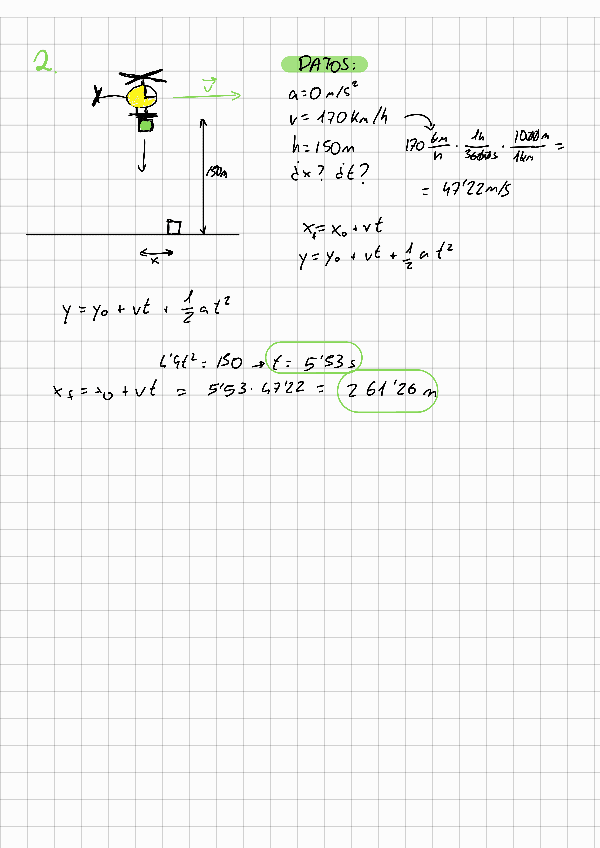 2.
v
150m
x
DATOS:
a=0 m/s²
v = 170 Km/h
h = 150m
¿x? ¿t?
170 km/h · 1h/3600s · 1000m/1km =
= 47'22 m/s
x_f = x_0 + vt
y = y_0 + vt + 1/2 a t²
y = y_0 + vt + 1/2 a t²
4'9t² = 150 → t = 5'53 s
x_f = x_0 + vt = 5'53 · 47'22 = 261'26 m